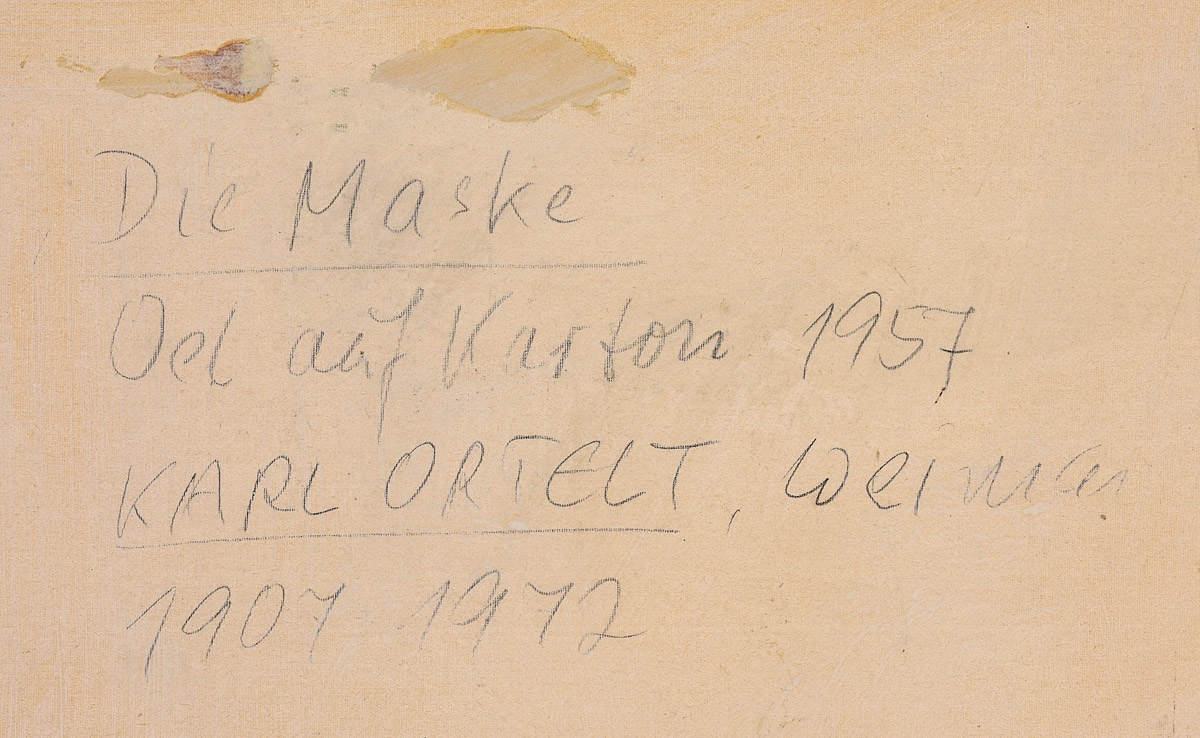 Die Maske
Oel auf Karton 1957
KARL ORTELT, Weimar
1907 1972